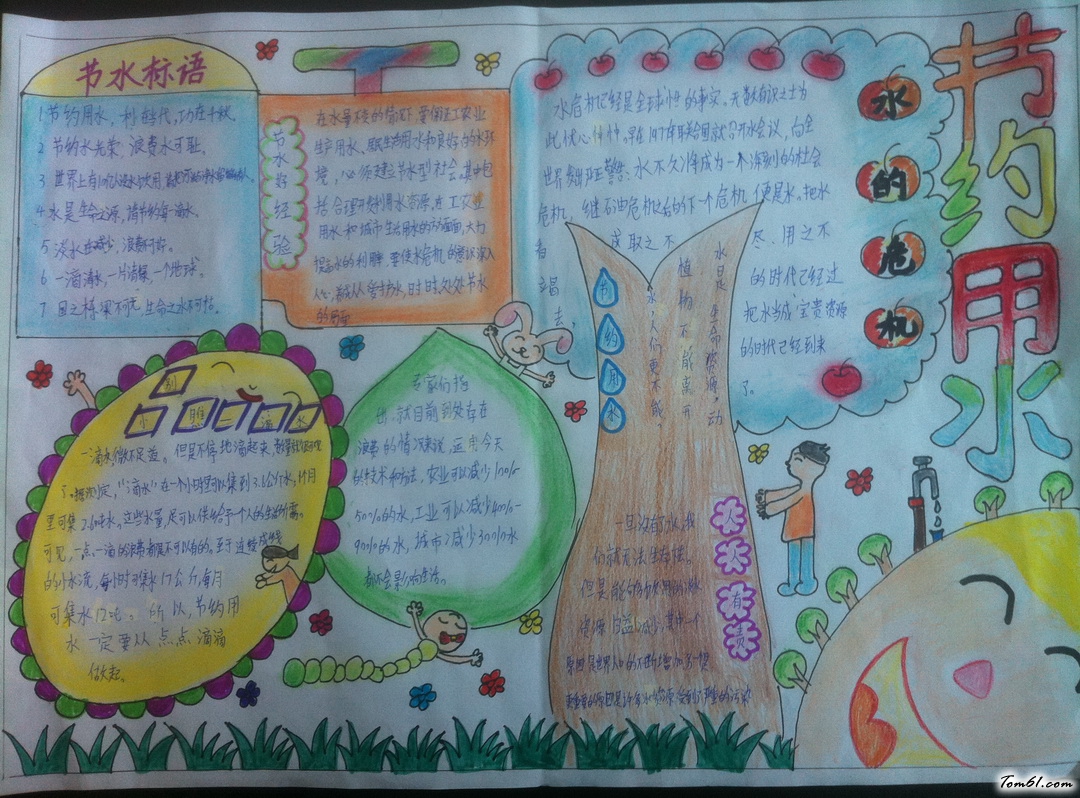 节水标语
1 节约用水，利在时代，功在千秋。
2 节约水光荣，浪费水可耻。
3 世界上有
4 水是生命之源，请节约每一滴水。
5 淡水在减少，浪费何在。
6 一滴清水，一片绿荫，一个地球。
7
节水好经验
在水量不足的情况下，要保证工农业
生产用水、居民生活用水和良好的水环
境，必须建立节水型社会。其中包
括合理开发利用水资源，在工农业
用水和城市生活用水的方方面面，大力
提高水的利用率，要使水危机的意识深入
人心，养成人人爱护水，时时、处处节水
的局面。
水危机已经是全球性的事实。无数有识之士为
此忧心忡忡。早在1977年联合国就召开水会议，向全
世界发出严正警告：水不久将成为一个深刻的社会
危机，继石油危机之后的下一个危机便是水。把水
看 成取之不 尽、用之不
竭 的时代已经过
去， 把水当成宝贵资源
的时代已经到来
了。
水的危机
节约用水
别小瞧一滴水
一滴水，微不足道。但是不停地滴起来，数量就很可观
了。据测定，“滴水”在一个小时里可以集到3.6公斤水，1个月
里可集2.6吨水。这些水量，足可以供给一个人的生活所需。
可见，一点一滴的浪费都是不可以有的。至于连续成线
的小水流，每小时可集水17公斤，每月
可集水12吨。所以，节约用
水一定要从点点滴滴
做起。
专家们指
出，就目前到处存在
浪费的情况来说，运用今天
的技术和方法，农业可以减少10%-
50%的水，工业可以减少40%-
90%的水，城市减少30%水
都不会影响生活。
节约用水
水是生命资源，动
植物不能离开
水，人们更不能。
一旦没有水，我
们就无法生存。
但是能够饮用的淡水
资源日益减少，其中一个
原因是世界人口的不断增加，另一个
更重要的原因是许多水资源受到了严重的污染
水水有责
Tom61.com